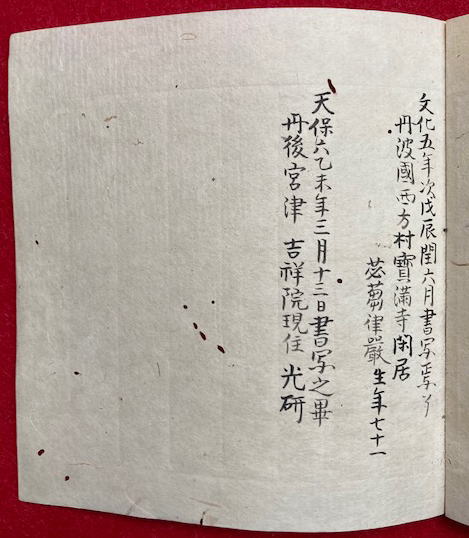 文化五年次戊辰閏六月書写
丹波國西方村寶満寺閑居
苾蒭律嚴 生年七十一
天保六乙未年三月十二日書写之畢
丹後宮津 吉祥院現住 光研